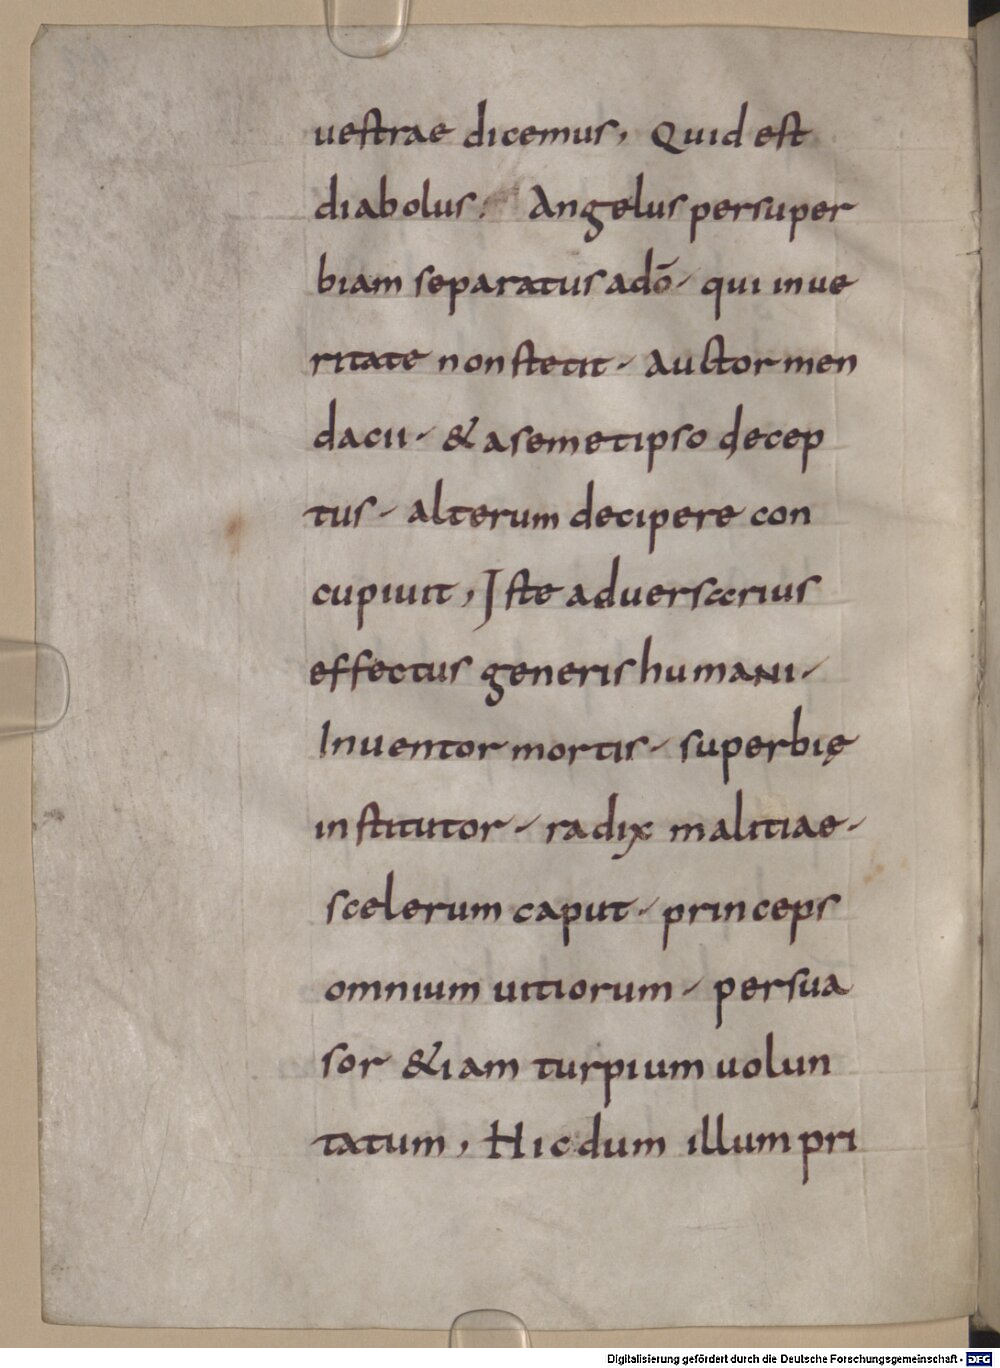 uestrae dicemus, Quid est
diabolus? Angelus persuper
biam separatus adō, qui inue
ritate non stetit, Auctor men
dacii, & asemetipso decep
tus, alterum decipere con
cupiuit, Iste aduersarius
effectus generis humani,
Inuentor mortis, superbię
institutor, radix malitiae,
scelerum caput, princeps
omnium uitiorum, persua
sor &iam turpium uolun
tatum, Hic dum illum pri
Digitalisierung gefördert durch die Deutsche Forschungsgemeinschaft - DFG